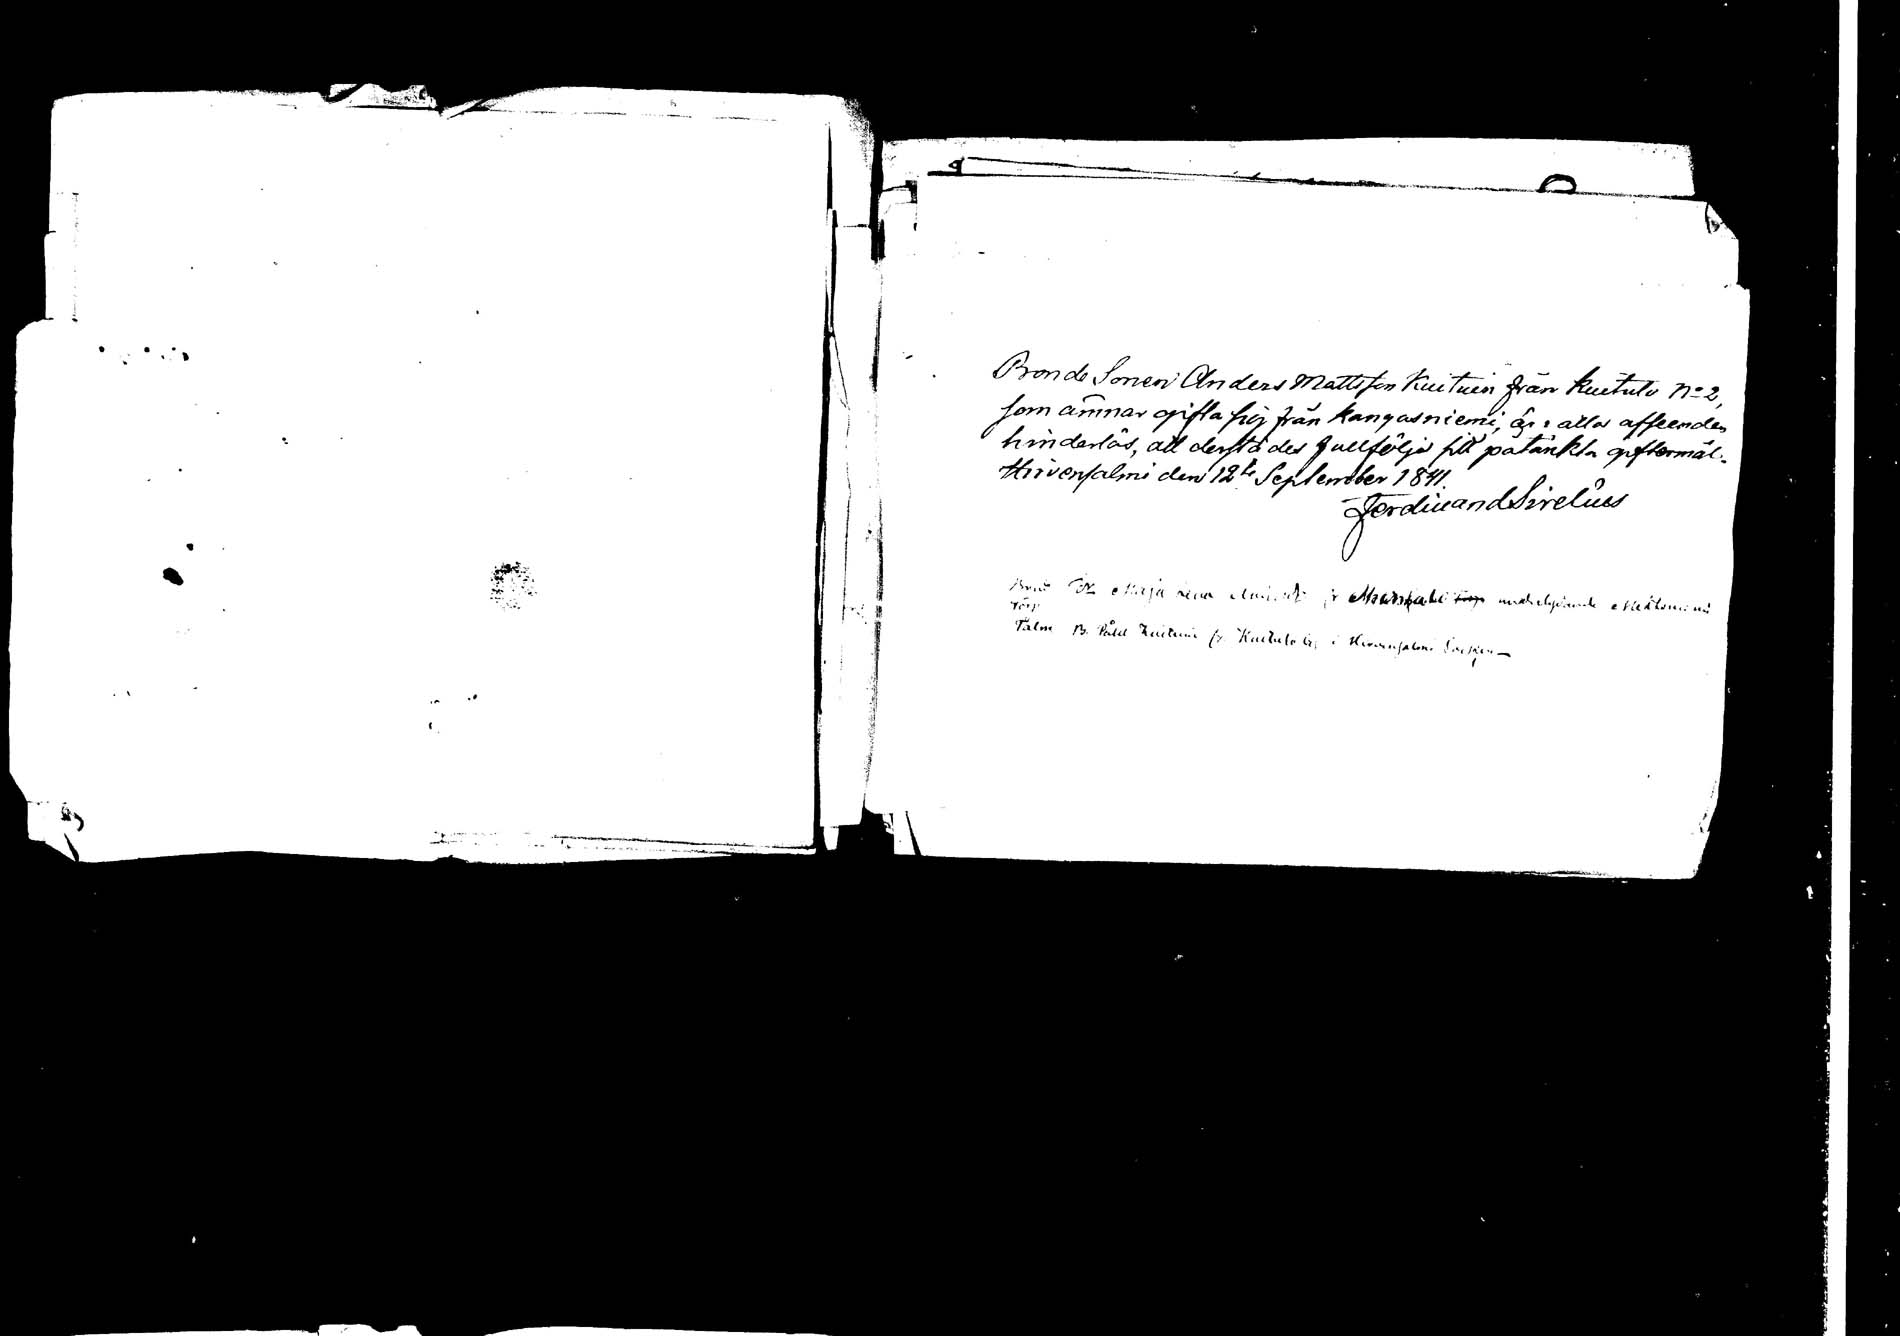 Bonde Sonen Anders Mattsson Kuituin från Kuitula No 2,
som ämnar gifta sig från Kangasniemi, är i alla afseenden
hinderlös, att derstädes fullfölja sitt påtänkta giftermål.
Hirvensalmi den 12te September 1841.
Ferdinand Sirelius
Brud Maja Lena underlydande
Torp
Talm B. Påhl Kuituin fr Kuitula by i Hirvensalmi Socken